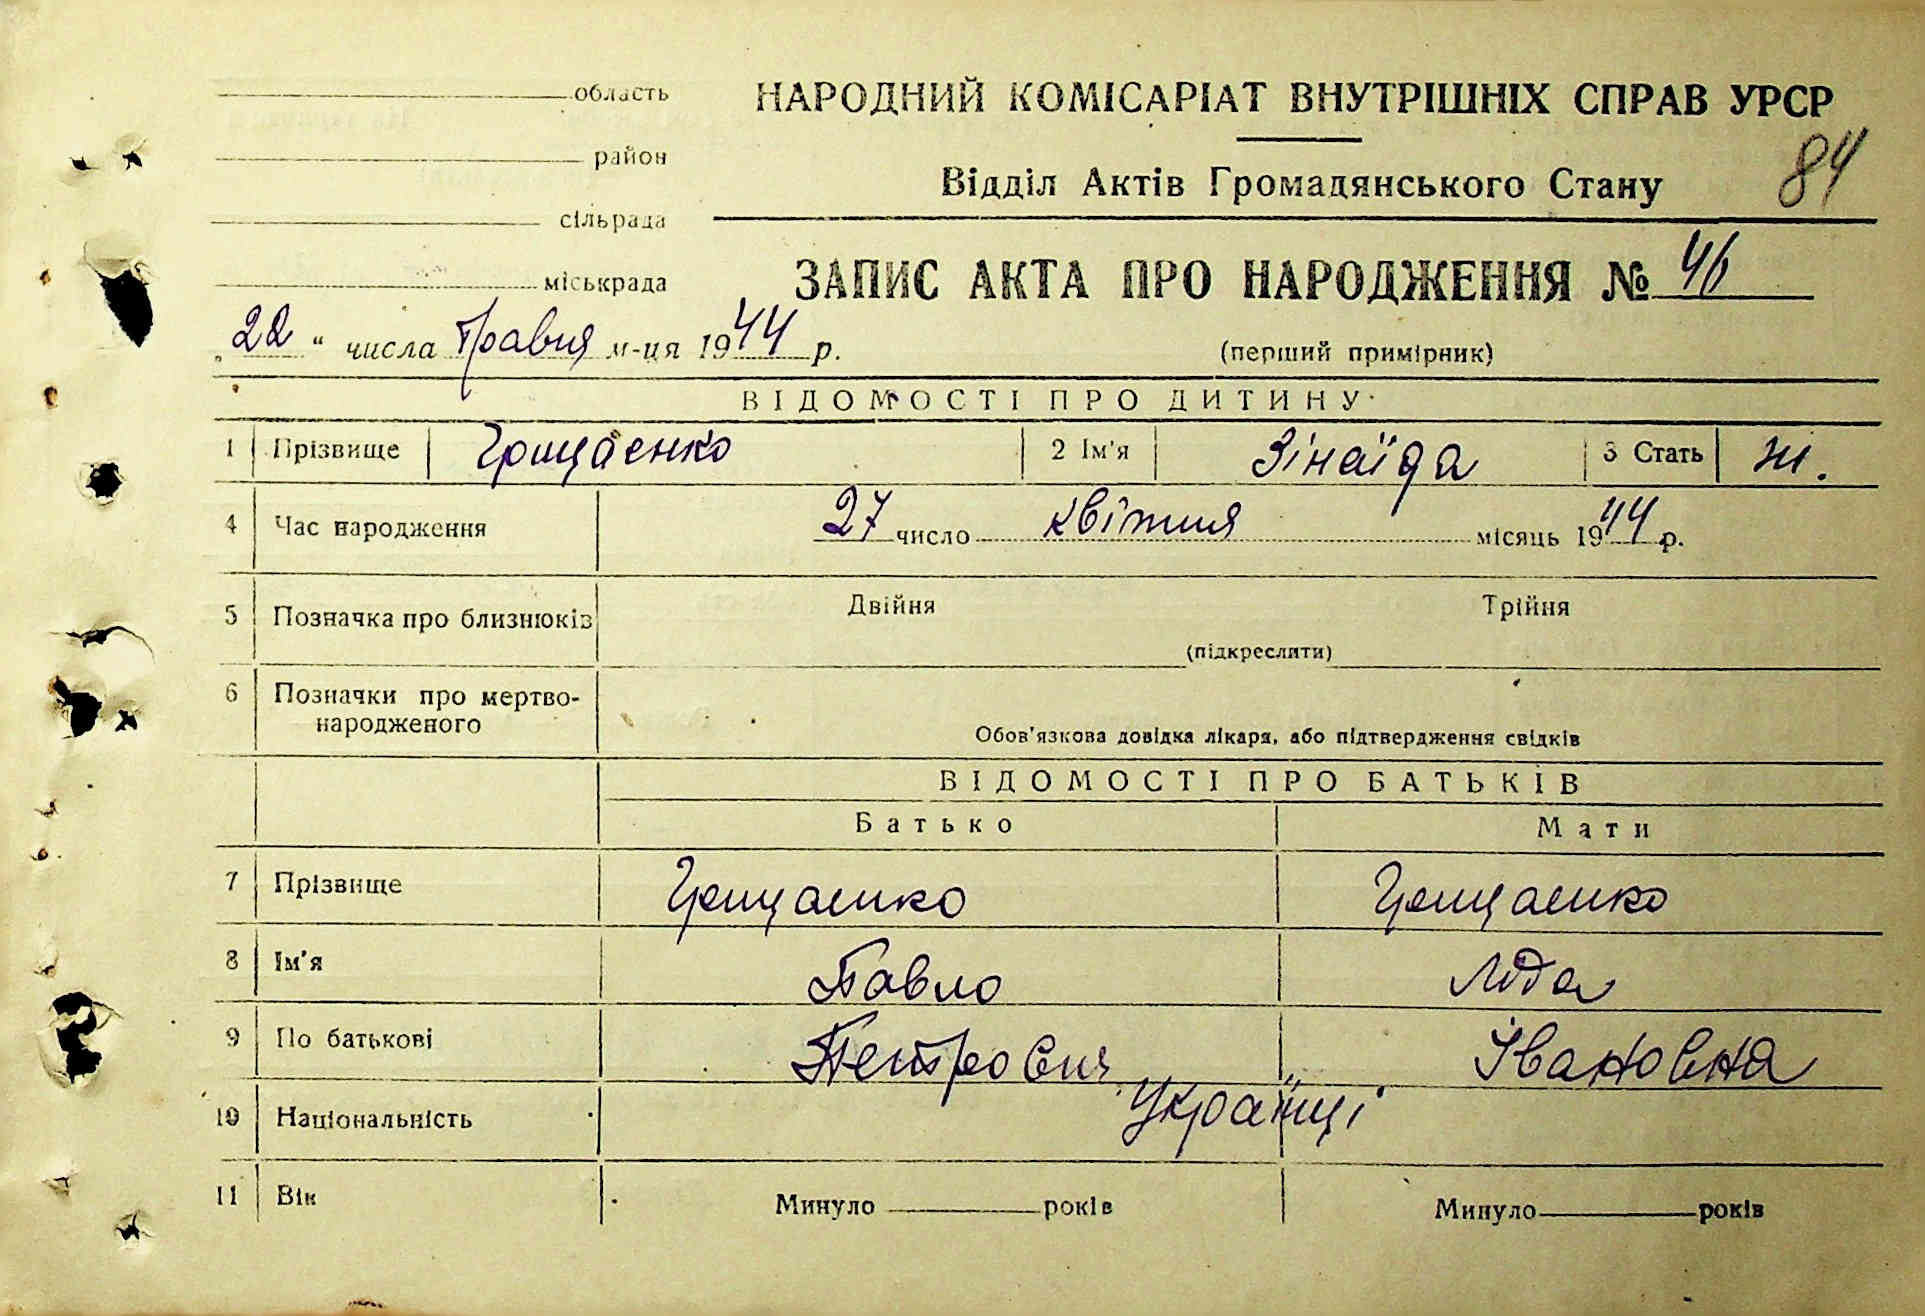 область
НАРОДНИЙ КОМІСАРІАТ ВНУТРІШНІХ СПРАВ УРСР
район
Відділ Актів Громадянського Стану
84
сільрада
міськрада
ЗАПИС АКТА ПРО НАРОДЖЕННЯ № 46
„22“ числа Травня м-ця 1944 р.
(перший примірник)
ВІДОМОСТІ ПРО ДИТИНУ
1 Прізвище Грищаєнко 2 Ім'я Зінаїда 3 Стать Ж.
4 Час народження 27 число квітня місяць 1944 р.
5 Позначка про близнюків Двійня Трійня
(підкреслити)
6 Позначки про мертво-
народженого
Обов'язкова довідка лікаря, або підтвердження свідків
ВІДОМОСТІ ПРО БАТЬКІВ
Батько Мати
7 Прізвище Грищаенко Грищаенко
8 Ім'я Павло Ліда
9 По батькові Петрович Івановна
10 Національність Українці
11 Вік Минуло років Минуло років